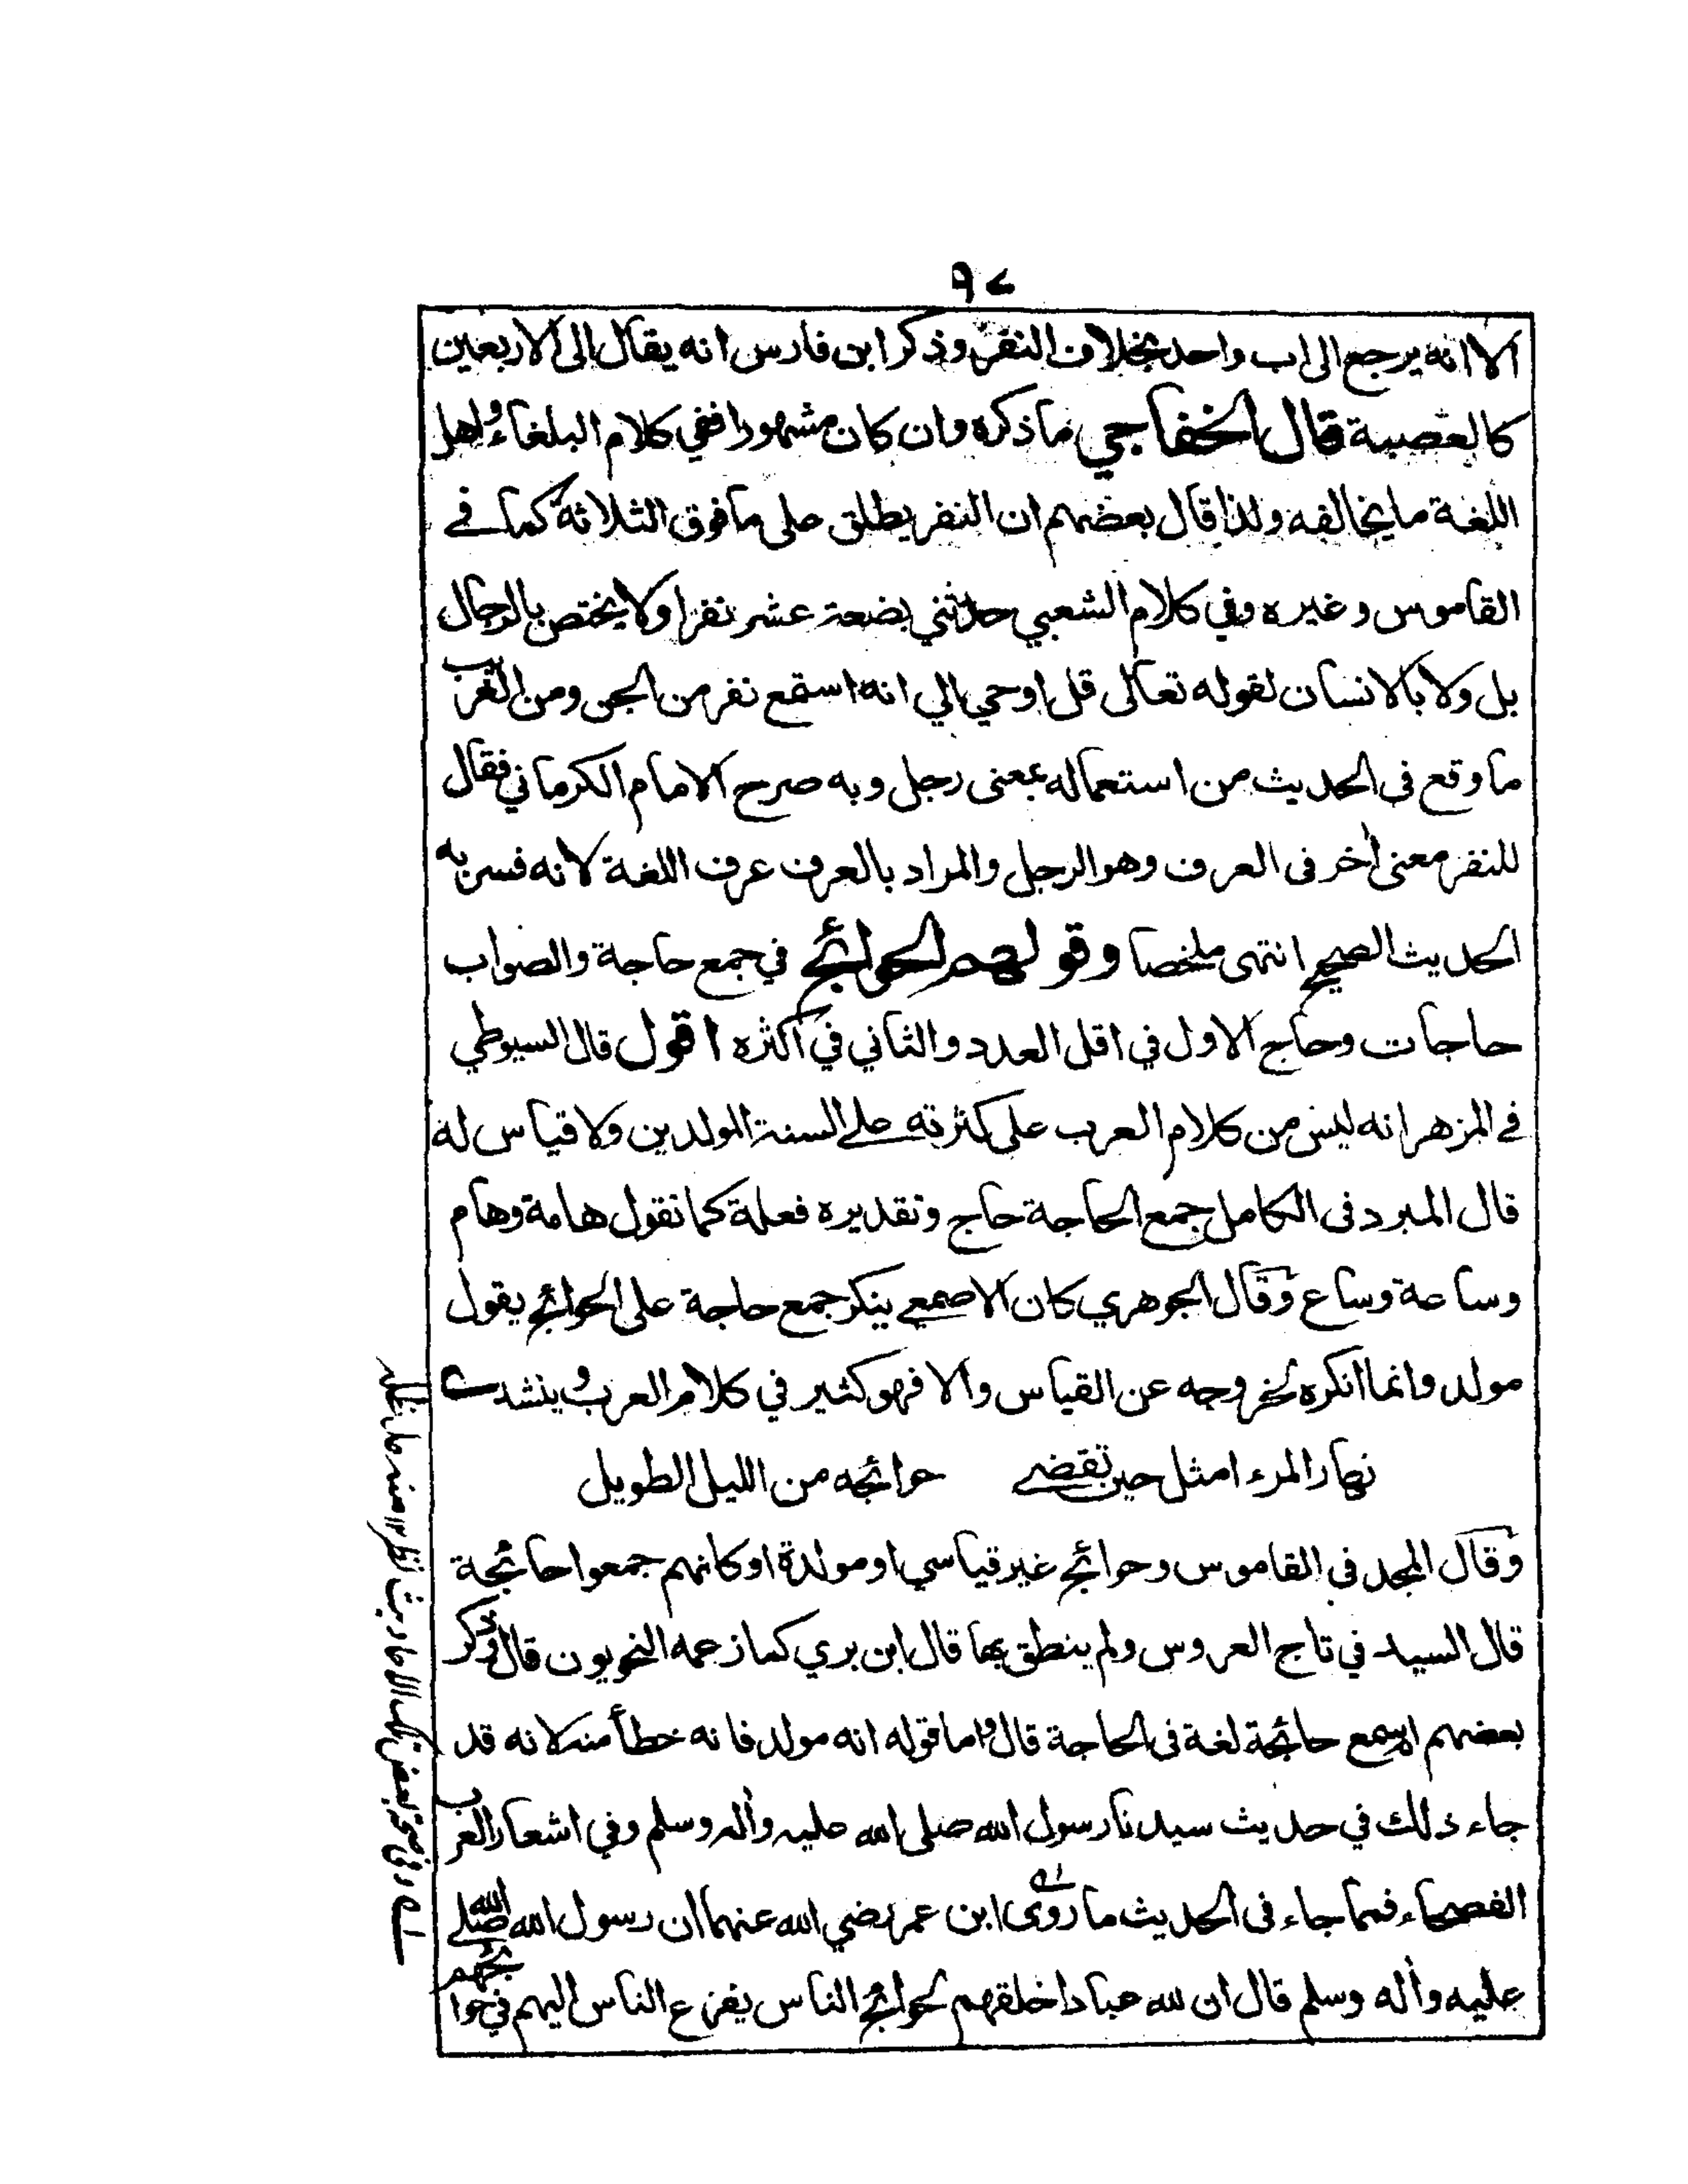 ٩٧
الا انه يرجع الى اب واحد بخلاف النفر وذكر ابن فارس انه يقال الى الاربعين
كالعصبة قال الخفاجي ما ذكره وان كان مشهورا ففي كلام البلغاء واهل
اللغة ما يخالفه ولذا قال بعضهم ان النفر يطلق على ما فوق الثلاثة كما في
القاموس وغيره وفي كلام الشعبي حدثني بضعة عشر نفرا ولا يختص بالرجال
بل ولا بالانسان لقوله تعالى قل اوحي الي انه استمع نفر من الجن ومن الغريب
ما وقع في الحديث من استعماله بمعنى رجل وبه صرح الامام الكرماني فقال
للنفر معنى أخر في العرف وهو الرجل والمراد بالعرف عرف اللغة لانه فسر به
الحديث الصحيح انتهى ملخصا وقولهم الحوائج في جمع حاجة والصواب
حاجات وحاج الاول في اقل العدد والثاني في اكثره اقول قال السيوطي
في المزهر انه ليس من كلام العرب على كثرته على السنة المولدين ولا قياس له
قال المبرد في الكامل جمع الحاجة حاج وتقديره فعلة كما تقول هامة وهام
وساعة وساع وقال الجوهري كان الاصمعي ينكر جمع حاجة على الحوائج يقول
مولد وانما انكره لخروجه عن القياس والا فهو كثير في كلام العرب وينشد
نهار المرء امثل حين تقضي حوائجه من الليل الطويل
وقال المجد في القاموس وحوائج غير قياسي او مولدة او كانهم جمعوا حائجة
قال السيد في تاج العروس ولم ينطق بها قال ابن بري كما زعمه النحويون قال وذكر
بعضهم انه سمع حائجة لغة في الحاجة قال واما قوله انه مولد فانه خطأ منه لانه قد
جاء ذلك في حديث سيدنا رسول الله صلى الله عليه وأله وسلم وفي اشعار العرب
الفصحاء فمما جاء في الحديث ما روى ابن عمر رضي الله عنهما ان رسول الله صلى الله
عليه وأله وسلم قال ان لله عبادا خلقهم لحوائج الناس يفزع الناس اليهم في حوائجهم